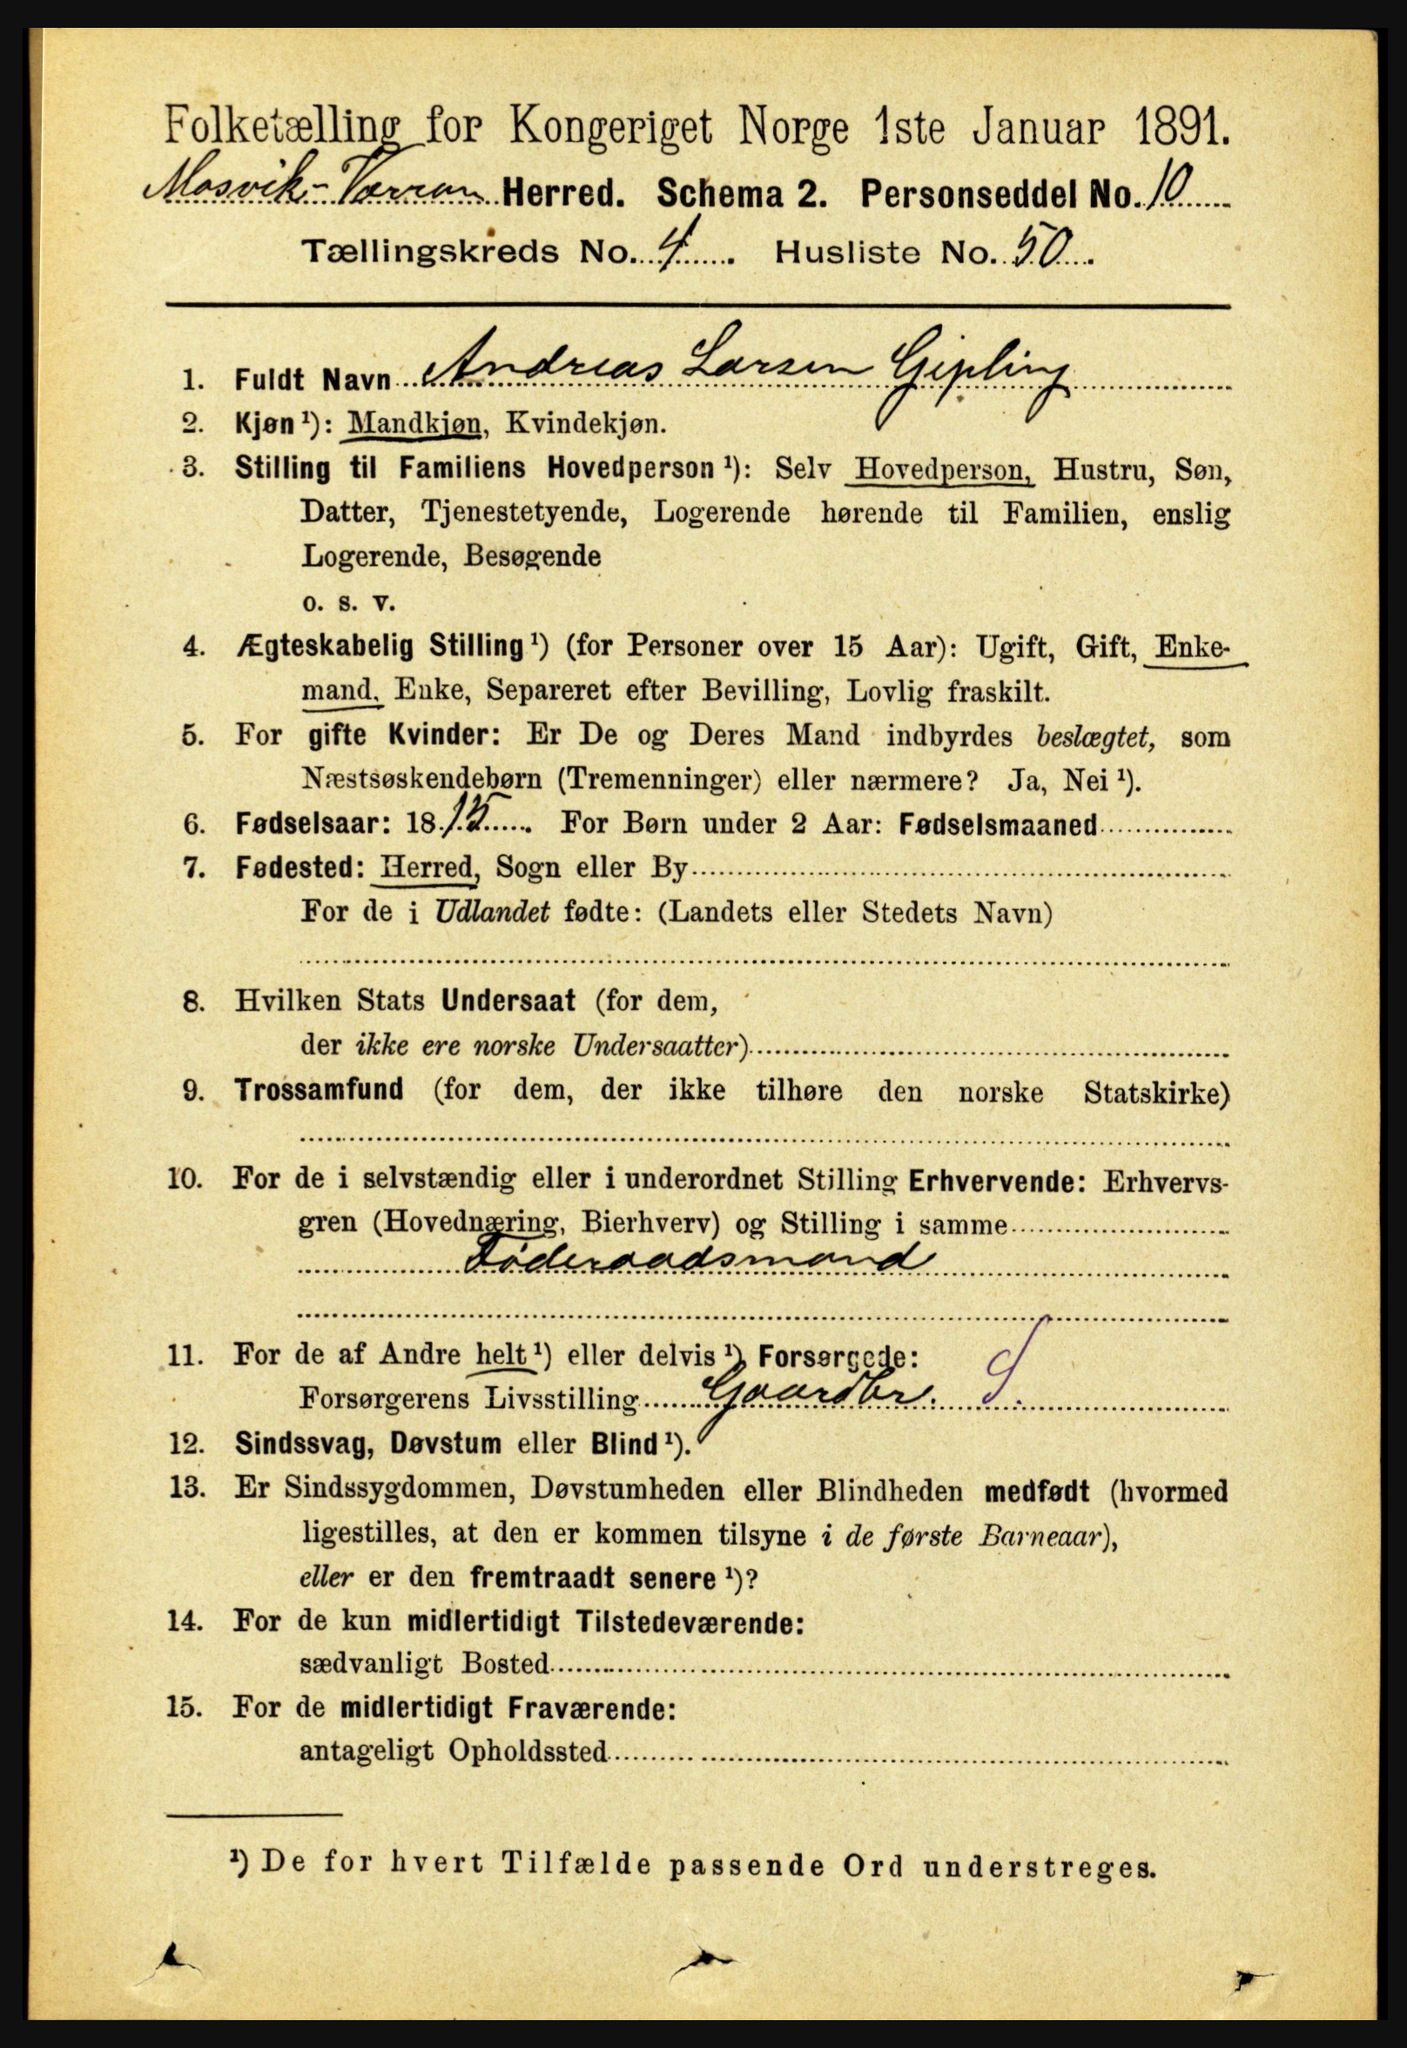 Folketælling for Kongeriget Norge 1ste Januar 1891.
Mosvik-Værran Herred. Schema 2. Personseddel No. 10
Tællingskreds No. 4. Husliste No. 50.
1. Fuldt Navn Andreas Larsen Gipling
2. Kjøn ¹): Mandkjøn, Kvindekjøn.
3. Stilling til Familiens Hovedperson ¹): Selv Hovedperson, Hustru, Søn,
Datter, Tjenestetyende, Logerende hørende til Familien, enslig
Logerende, Besøgende
o. s. v.
4. Ægteskabelig Stilling ¹) (for Personer over 15 Aar): Ugift, Gift, Enke-
mand, Enke, Separeret efter Bevilling, Lovlig fraskilt.
5. For gifte Kvinder: Er De og Deres Mand indbyrdes beslægtet, som
Næstsøskendebørn (Tremenninger) eller nærmere? Ja, Nei ¹).
6. Fødselsaar: 1815. For Børn under 2 Aar: Fødselsmaaned
7. Fødested: Herred, Sogn eller By
For de i Udlandet fødte: (Landets eller Stedets Navn)
8. Hvilken Stats Undersaat (for dem,
der ikke ere norske Undersaatter)
9. Trossamfund (for dem, der ikke tilhøre den norske Statskirke)
10. For de i selvstændig eller i underordnet Stilling Erhvervende: Erhvervs-
gren (Hovednæring, Bierhverv) og Stilling i samme
Föderaadsmand
11. For de af Andre helt ¹) eller delvis ¹) Forsørgede:
Forsørgerens Livsstilling Gaardbr. S.
12. Sindssvag, Døvstum eller Blind ¹).
13. Er Sindssygdommen, Døvstumheden eller Blindheden medfødt (hvormed
ligestilles, at den er kommen tilsyne i de første Barneaar),
eller er den fremtraadt senere ¹)?
14. For de kun midlertidigt Tilstedeværende:
sædvanligt Bosted
15. For de midlertidigt Fraværende:
antageligt Opholdssted
¹) De for hvert Tilfælde passende Ord understreges.